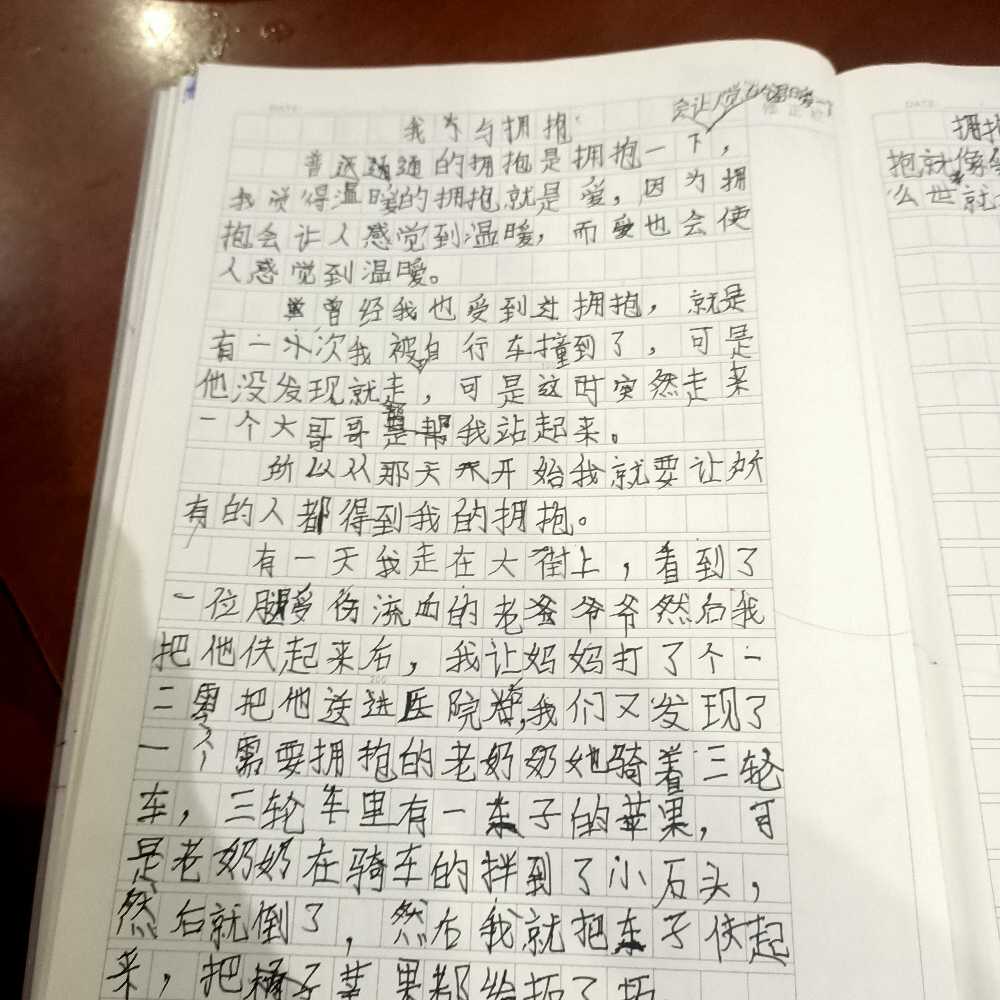 我与拥抱
会让人觉
普通的拥抱是拥抱一下，
我觉得温暖的拥抱就是爱，因为拥
抱会让人感觉到温暖，而爱也会使
人感觉到温暖。
曾经我也受到过拥抱，就是
有一次我被自行车撞到了，可是
他没发现就走，可是这时突然走来
一个大哥哥帮我站起来。
所以从那天开始我就要让所
有的人都得到我的拥抱。
有一天我走在大街上，看到了
一位腿受伤流血的老爷爷然后我
把他伕起来后，我让妈妈打了个一
二零把他送进医院，我们又发现了
一个需要拥抱的老奶奶她骑着三轮
车，三轮车里有一车子的苹果，可
是老奶奶在骑车的拌到了小石头，
然后就倒了，然后我就把车子伕起
来，把苹果都给
拥抱
抱就像
么世就